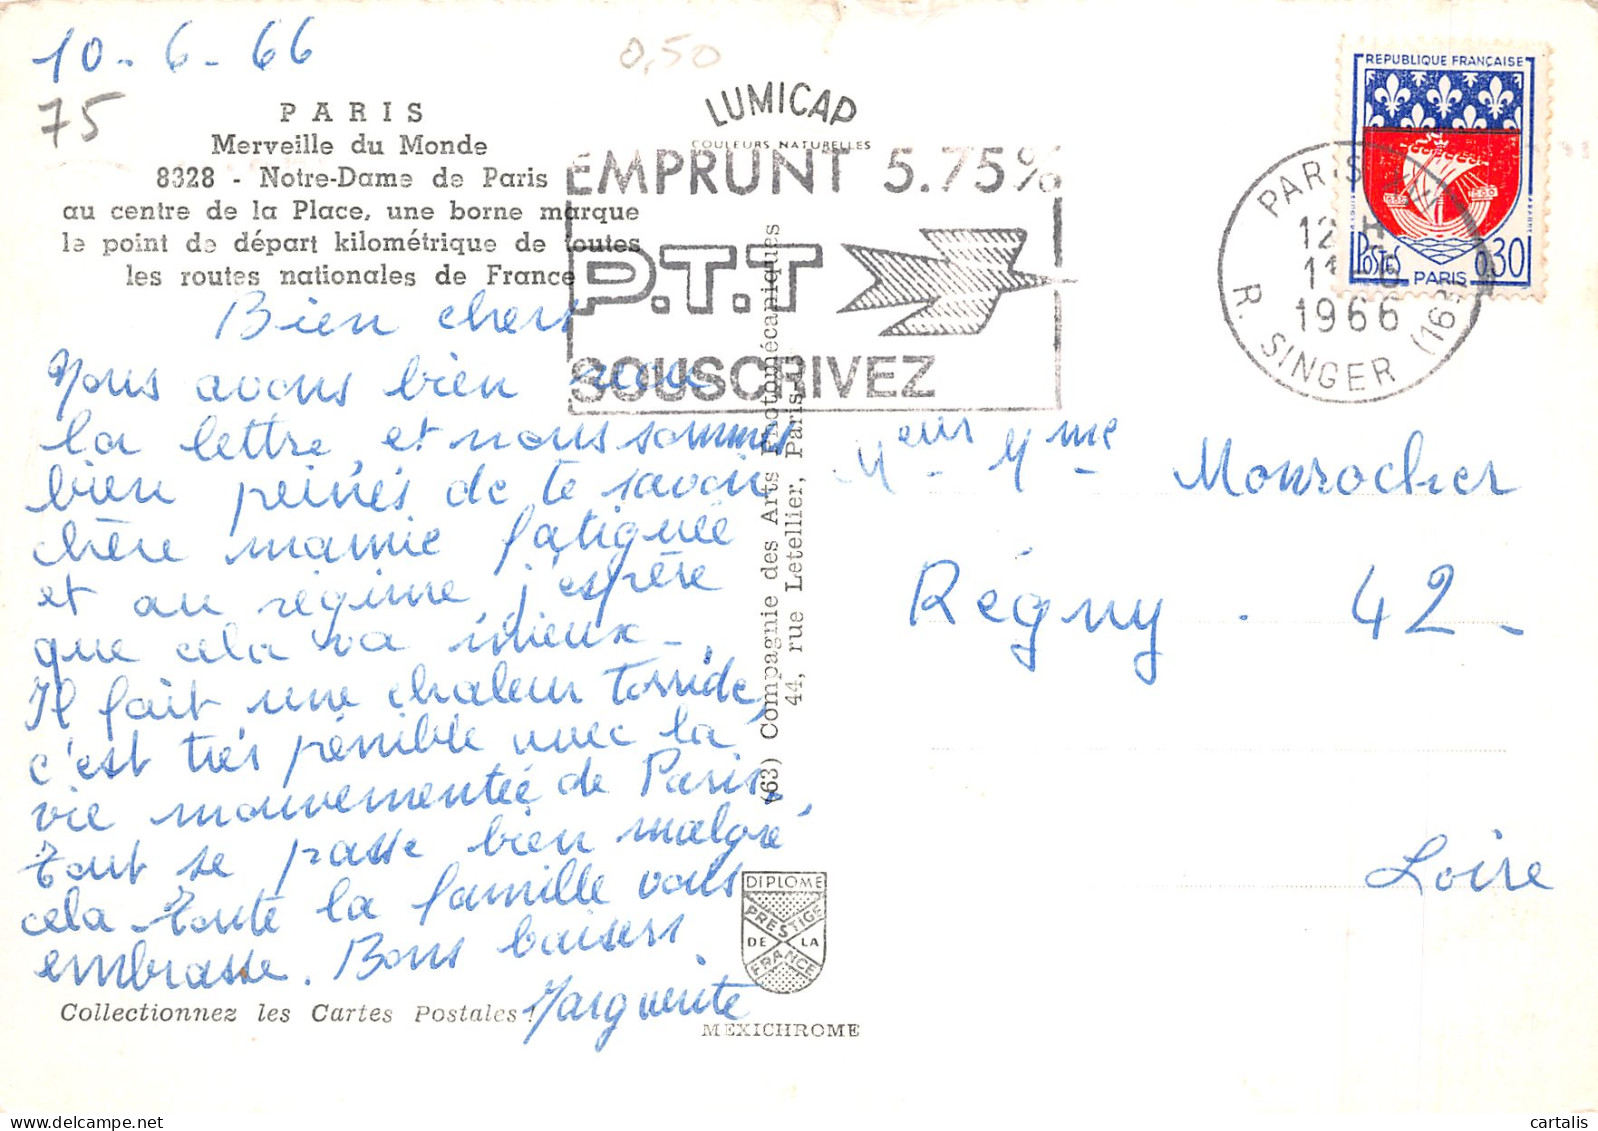 10-6-66
0,50
75
PARIS
Merveille du Monde
8328 - Notre-Dame de Paris
au centre de la Place, une borne marque
le point de départ kilométrique de toutes
les routes nationales de France
LUMICAP
COULEURS NATURELLES
EMPRUNT 5.75%
P.T.T
SOUSCRIVEZ
REPUBLIQUE FRANÇAISE
POSTES
PARIS
0,30
PARIS
12 H
11-6
1966
R. SINGER (16e)
Bien chers
Nous avons bien reçu
la lettre, et nous sommes
bien peinés de te savoir
chère mamie fatiguée
et au régime, j'espère
que cela va mieux -
Il fait une chaleur torride,
c'est très pénible avec la
vie mouvementée de Paris,
tout se passe bien malgré
cela. Toute la famille vous
embrasse. Bons baisers
Marguerite
Meur Mme Monrocher
Régny . 42 -
Loire
(63) Compagnie des Arts Photomécaniques
44, rue Letellier, Paris-15
DIPLOME
PRESTIGE
DE LA
FRANCE
Collectionnez les Cartes Postales !
MEXICHROME
cartalis.com